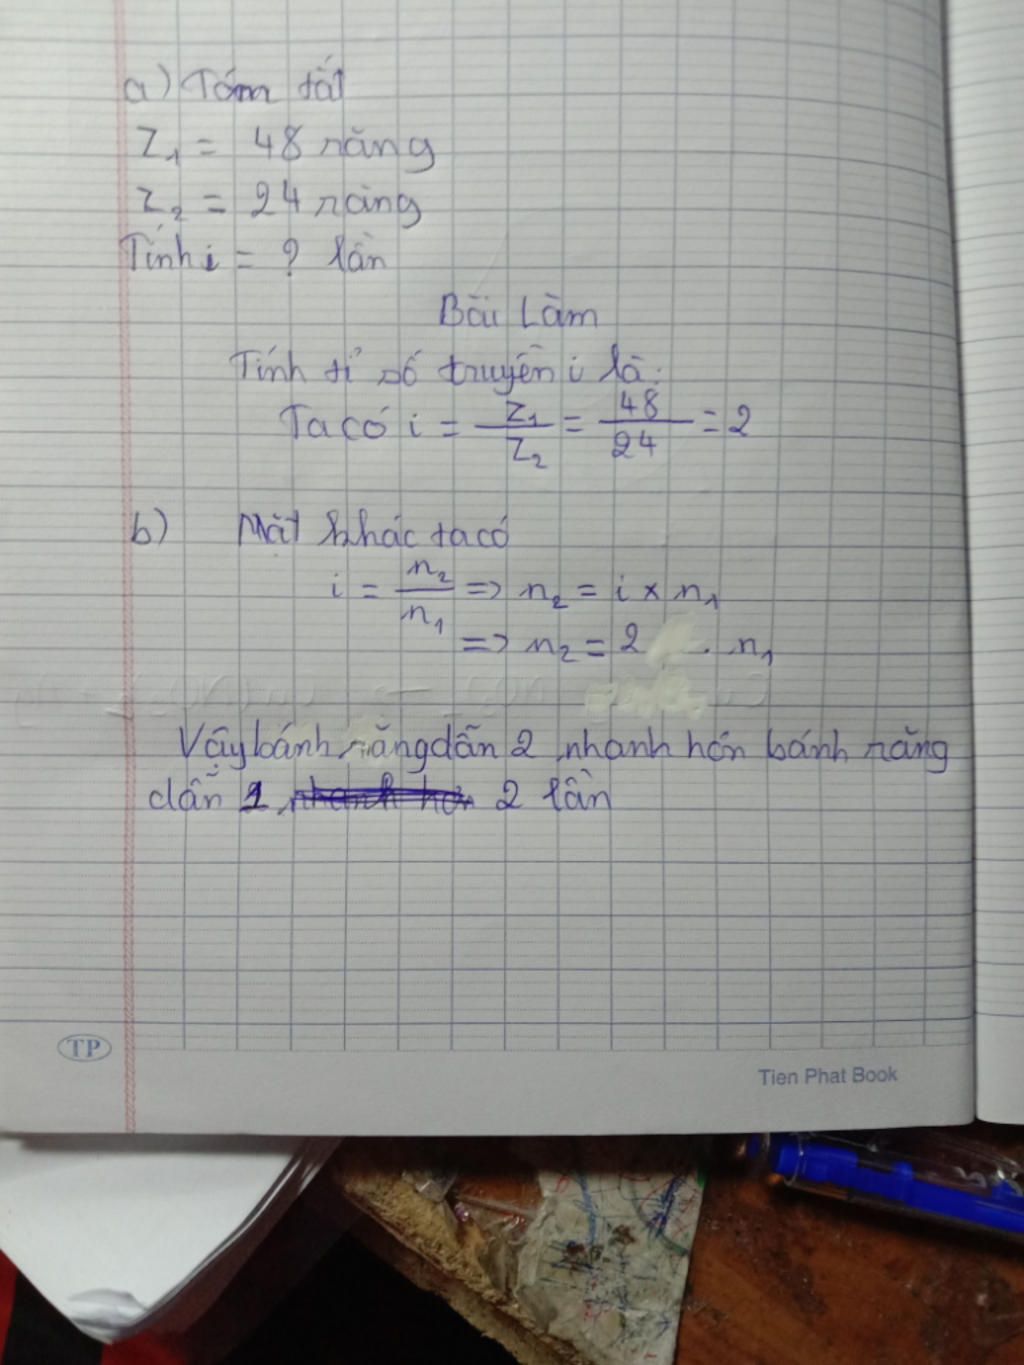 a) Tóm tắt
Z1 = 48 răng
Z2 = 24 răng
Tính i = ? lần
Bài Làm
Tính tỉ số truyền i là:
Ta có i = Z1/Z2 = 48/24 = 2
b) Mặt khác ta có
i = n2/n1 => n2 = i x n1
=> n2 = 2 . n1
Vậy bánh răng dẫn 2 nhanh hơn bánh răng
dẫn 1 nhanh hơn 2 lần
TP
Tien Phat Book